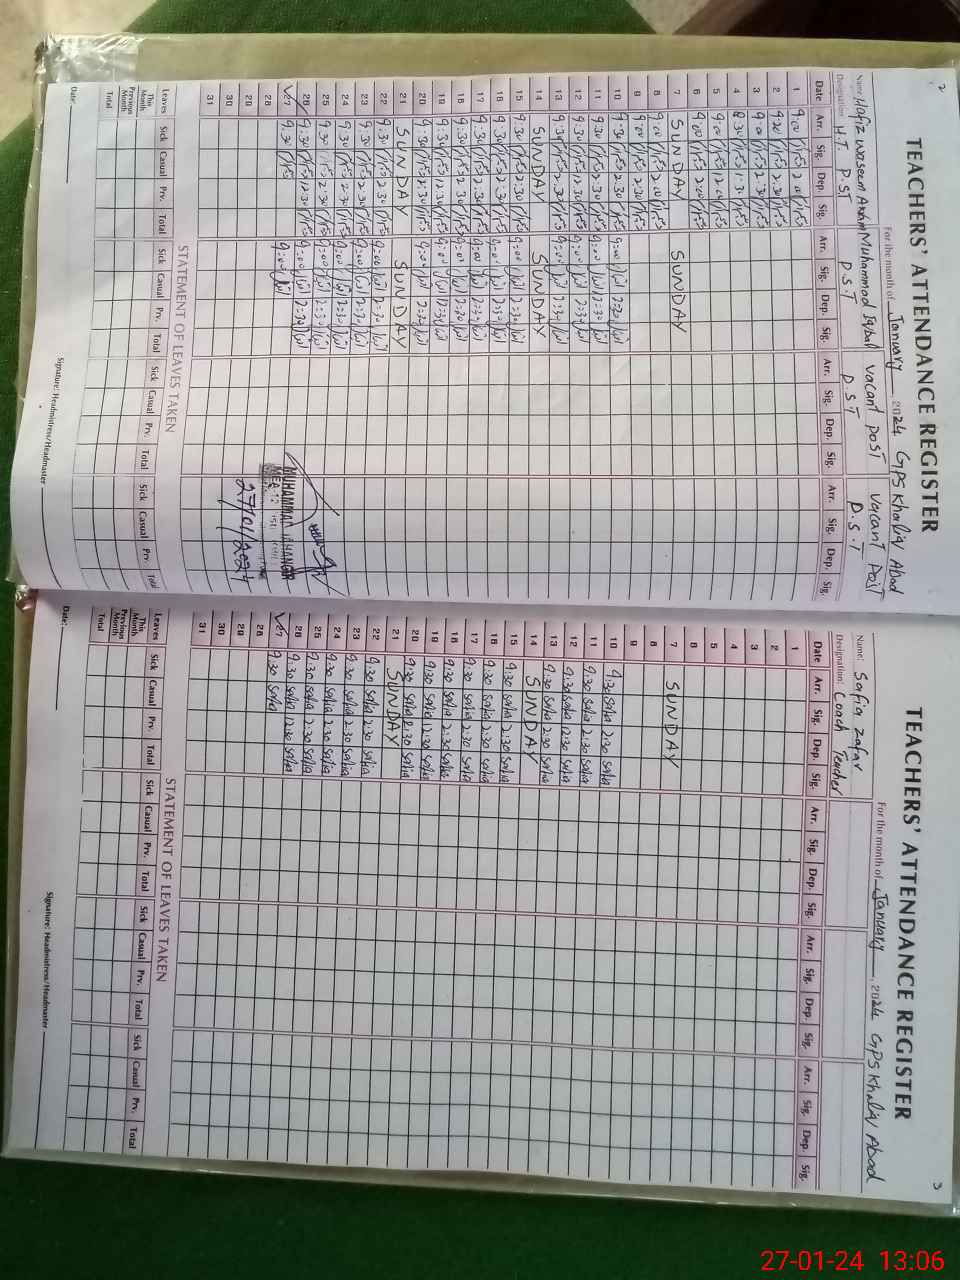 2
TEACHERS' ATTENDANCE REGISTER
For the month of January, 2024 GPS Khaliq Abad
Name: Hafiz Waseem Akram Muhammad Iqbal Vacant Post Vacant Post
Designation H.T P.ST P.S.T P.S.T P.S.T
Date Arr. Sig. Dep. Sig. Arr. Sig. Dep. Sig. Arr. Sig. Dep. Sig. Arr. Sig. Dep. Sig.
1 9:00 2:00
2 9:00 2:30
3 9:00 2:30
4 8:30 1:30
5 9:00 12:00
6 9:00 2:00
7 SUNDAY SUNDAY
8 9:00 2:00
9 9:00 2:30
10 9:30 2:30 9:00 2:30
11 9:30 2:30 9:00 2:30
12 9:30 12:30 9:00 12:30
13 9:30 2:30 9:00 2:30
14 SUNDAY SUNDAY
15 9:30 2:30 9:00 2:30
16 9:30 2:30 9:00 2:30
17 9:30 2:30 9:00 2:30
18 9:30 2:30 9:00 2:30
19 9:30 12:30 9:00 12:30
20 9:30 2:30 9:00 2:30
21 SUNDAY SUNDAY
22 9:30 2:30 9:00 2:30
23 9:30 2:30 9:00 2:30
24 9:30 2:30 9:00 2:30
25 9:30 2:30 9:00 2:30
26 9:30 12:30 9:00 12:30
27 9:30 9:00
28
29
30
31
MUHAMMAD JAHANGIR
27/01/2024
STATEMENT OF LEAVES TAKEN
Leaves Sick Casual Prv. Total Sick Casual Prv. Total Sick Casual Prv. Total Sick Casual Prv. Total
This Month
Previous Month
Total
Date: Signature: Headmistress/Headmaster
3
TEACHERS' ATTENDANCE REGISTER
For the month of January, 2024 GPS Khaliq Abad
Name: Safia Zafar
Designation: Coach Teacher
Date Arr. Sig. Dep. Sig. Arr. Sig. Dep. Sig. Arr. Sig. Dep. Sig. Arr. Sig. Dep. Sig.
1
2
3
4
5
6
7 SUNDAY
8
9
10 9:30 Safia 2:30 Safia
11 9:30 Safia 2:30 Safia
12 9:30 Safia 12:30 Safia
13 9:30 Safia 2:30 Safia
14 SUNDAY
15 9:30 Safia 2:30 Safia
16 9:30 Safia 2:30 Safia
17 9:30 Safia 2:30 Safia
18 9:30 Safia 2:30 Safia
19 9:30 Safia 12:30 Safia
20 9:30 Safia 2:30 Safia
21 SUNDAY
22 9:30 Safia 2:30 Safia
23 9:30 Safia 2:30 Safia
24 9:30 Safia 2:30 Safia
25 9:30 Safia 2:30 Safia
26 9:30 Safia 12:30 Safia
27 9:30 Safia
28
29
30
31
STATEMENT OF LEAVES TAKEN
Leaves Sick Casual Prv. Total Sick Casual Prv. Total Sick Casual Prv. Total Sick Casual Prv. Total
This Month
Previous Month
Total
Date: Signature: Headmistress/Headmaster
27-01-24 13:06